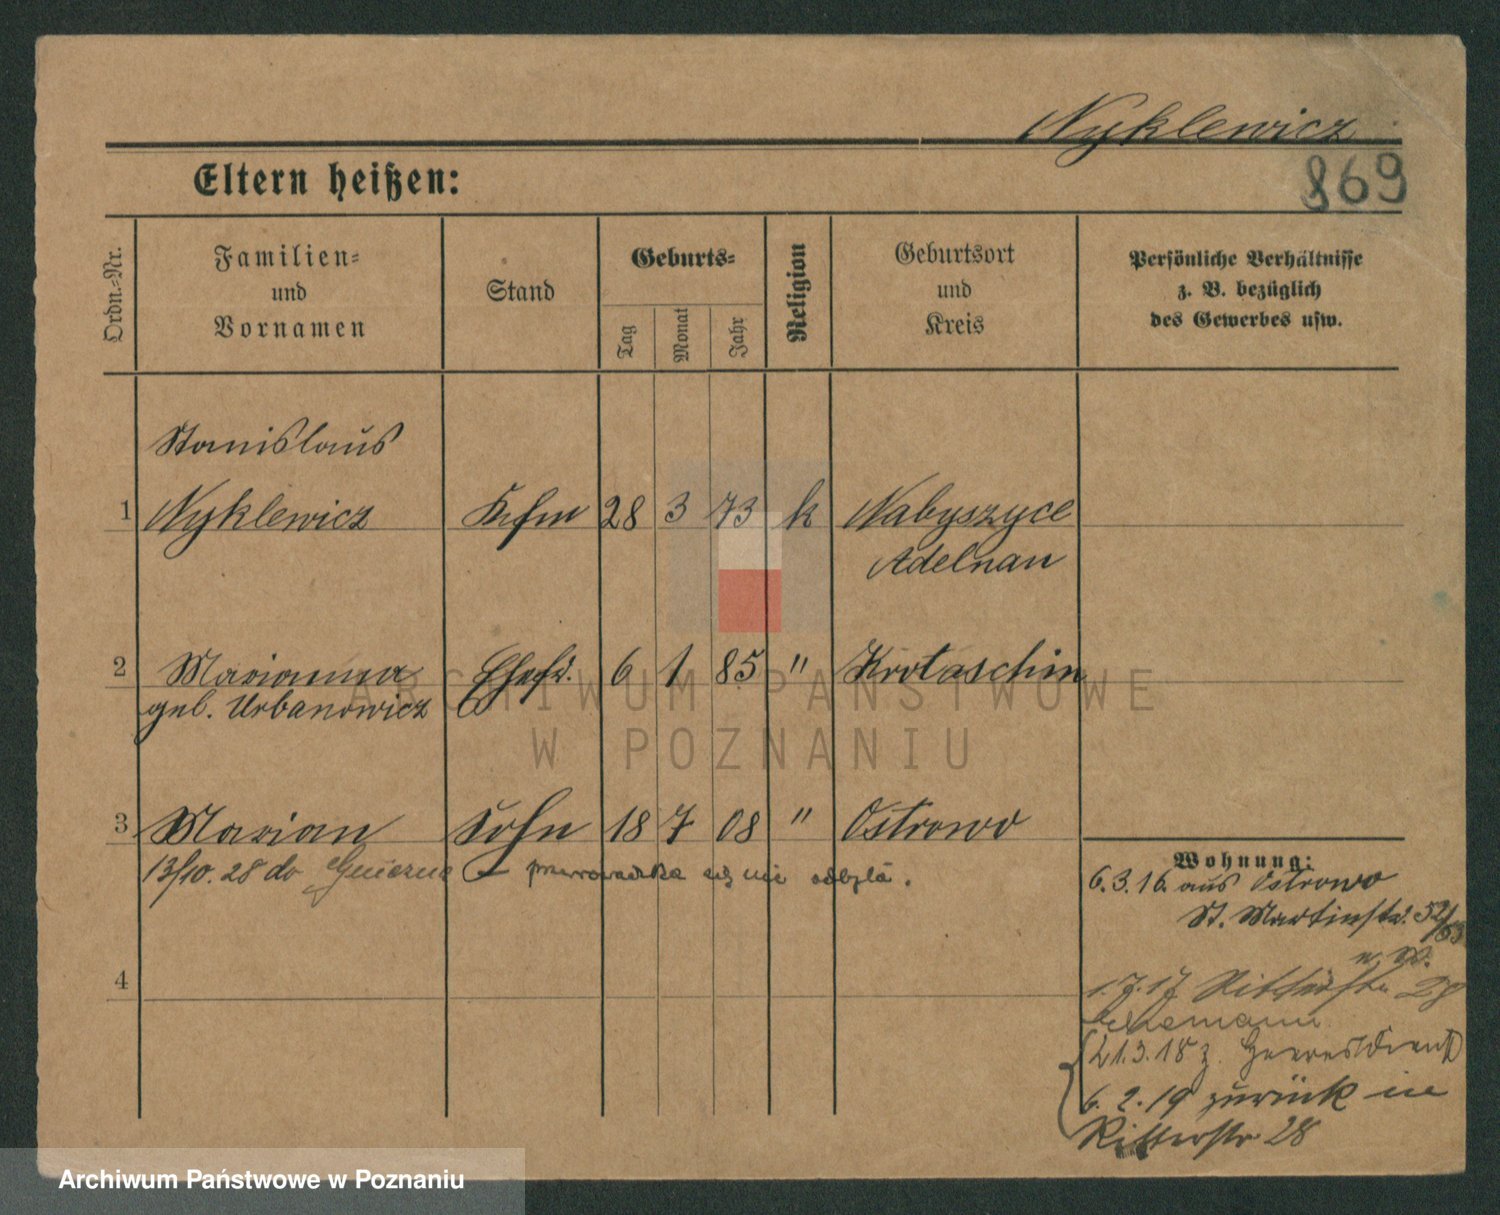 Nyklewicz
Eltern heißen:
869
Ordn.-Nr.
Familien-
und
Vornamen
Stand
Geburts-
Tag
Monat
Jahr
Religion
Geburtsort
und
Kreis
Persönliche Verhältnisse
z. B. bezüglich
des Gewerbes usw.
Stanislaus
1 Nyklewicz Kfm 28 3 73 k Nabyszyce
Adelnau
2 Marianna Ehefr. 6 1 85 " Krotoschin
geb. Urbanowicz
3 Marian Sohn 18 7 08 " Ostrowo
13/10. 28 do Gniezna przeprowadzka się nie odbyła.
Wohnung:
6.3.16. aus Ostrowo
St. Martinstr. 52/53
1.7.17 Ritterstr. 28
4
21.3.18 z. Heeresdienst
6.2.19 zurück in
Ritterstr 28
ARCHIWUM PAŃSTWOWE
W POZNANIU
Archiwum Państwowe w Poznaniu